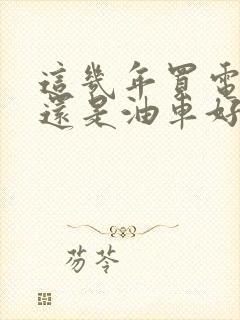 這幾年買電
還是油車好
芴苓